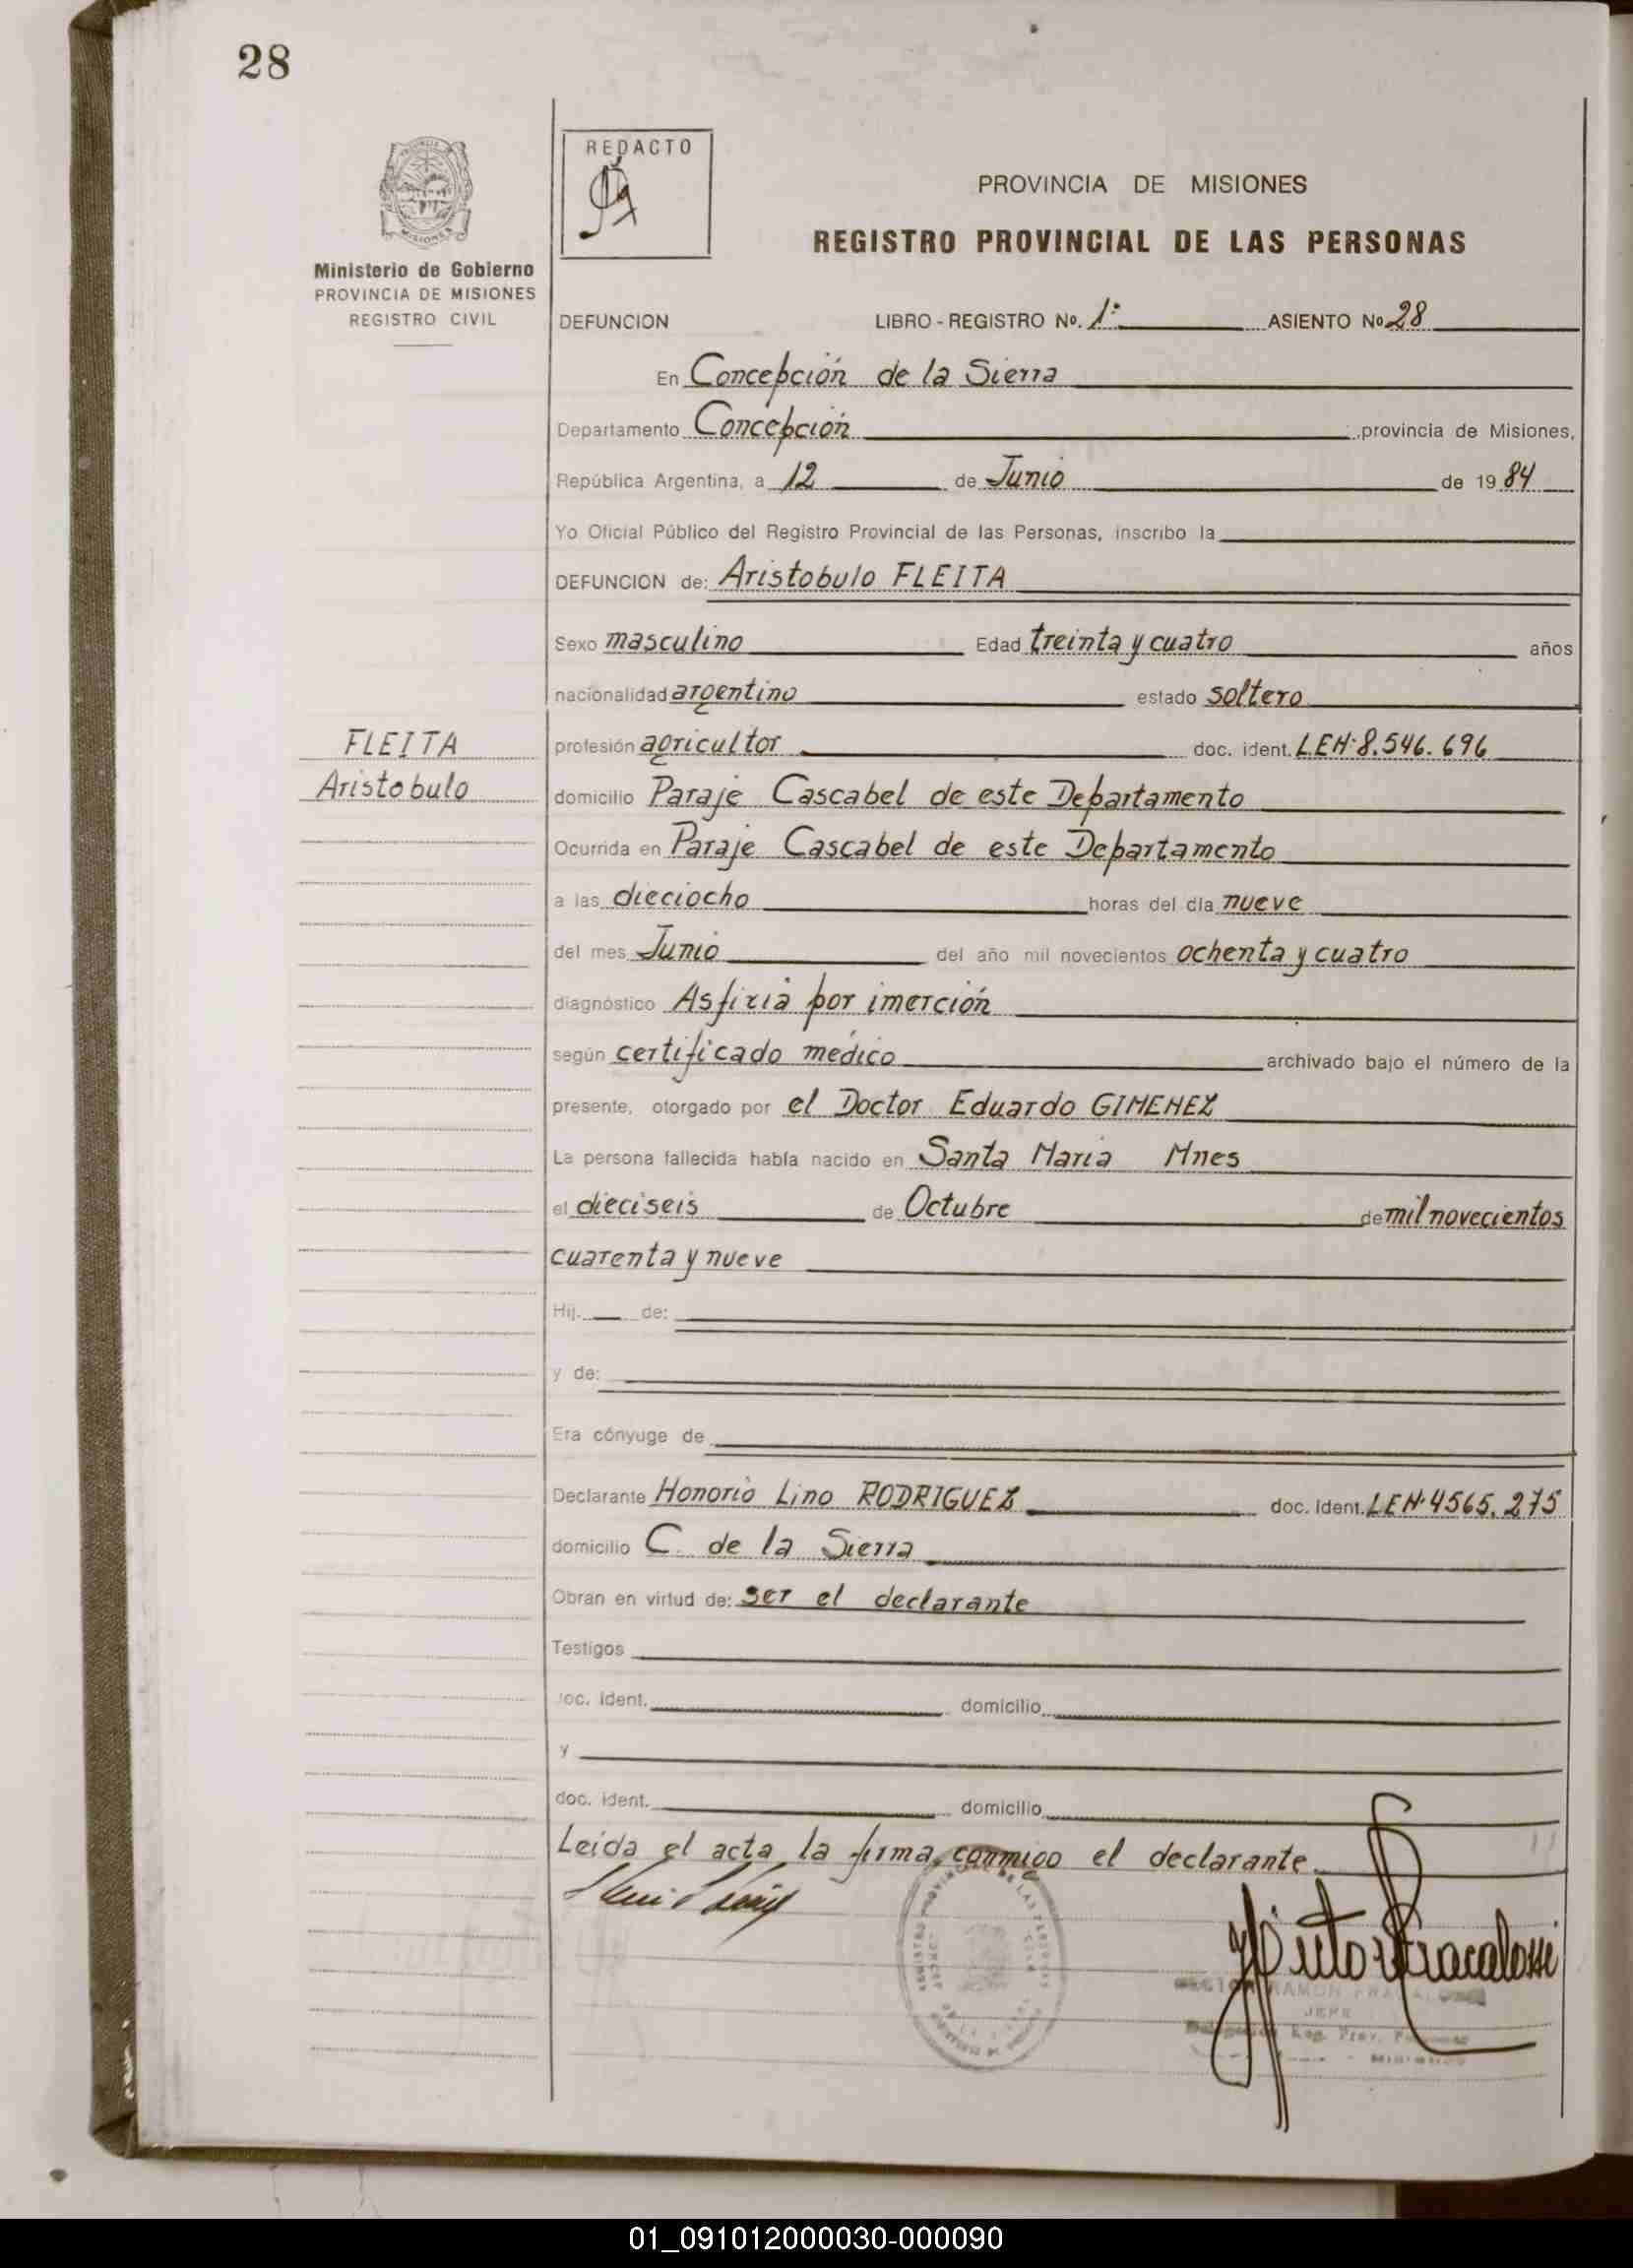 28
REDACTO
PROVINCIA DE MISIONES
REGISTRO PROVINCIAL DE LAS PERSONAS
Ministerio de Gobierno
PROVINCIA DE MISIONES
REGISTRO CIVIL
DEFUNCION LIBRO - REGISTRO No. 1: ASIENTO No 28
En Concepción de la Sierra
Departamento Concepción , provincia de Misiones,
República Argentina, a 12 de Junio de 19 84
Yo Oficial Público del Registro Provincial de las Personas, inscribo la
DEFUNCION de: Aristobulo FLEITA
Sexo masculino Edad treinta y cuatro años
nacionalidad argentino estado soltero
FLEITA
Aristobulo
profesión agricultor doc. ident. L.EN: 8.546.696
domicilio Paraje Cascabel de este Departamento
Ocurrida en Paraje Cascabel de este Departamento
a las dieciocho horas del día nueve
del mes Junio del año mil novecientos ochenta y cuatro
diagnóstico Asfixia por imerción
según certificado médico archivado bajo el número de la
presente, otorgado por el Doctor Eduardo GIMENEZ
La persona fallecida había nacido en Santa María Mnes
el dieciseis de Octubre de mil novecientos
cuarenta y nueve
Hij. de:
y de:
Era cónyuge de
Declarante Honorio Lino RODRIGUEZ doc. Ident. LEN: 4565.275
domicilio C. de la Sierra
Obran en virtud de: ser el declarante
Testigos
doc. Ident. domicilio
y
doc. ident. domicilio
Leida el acta la firma conmigo el declarante
RAMON FRACALOSSI
JEFE
Reg. Prov. Personas
01_091012000030-000090